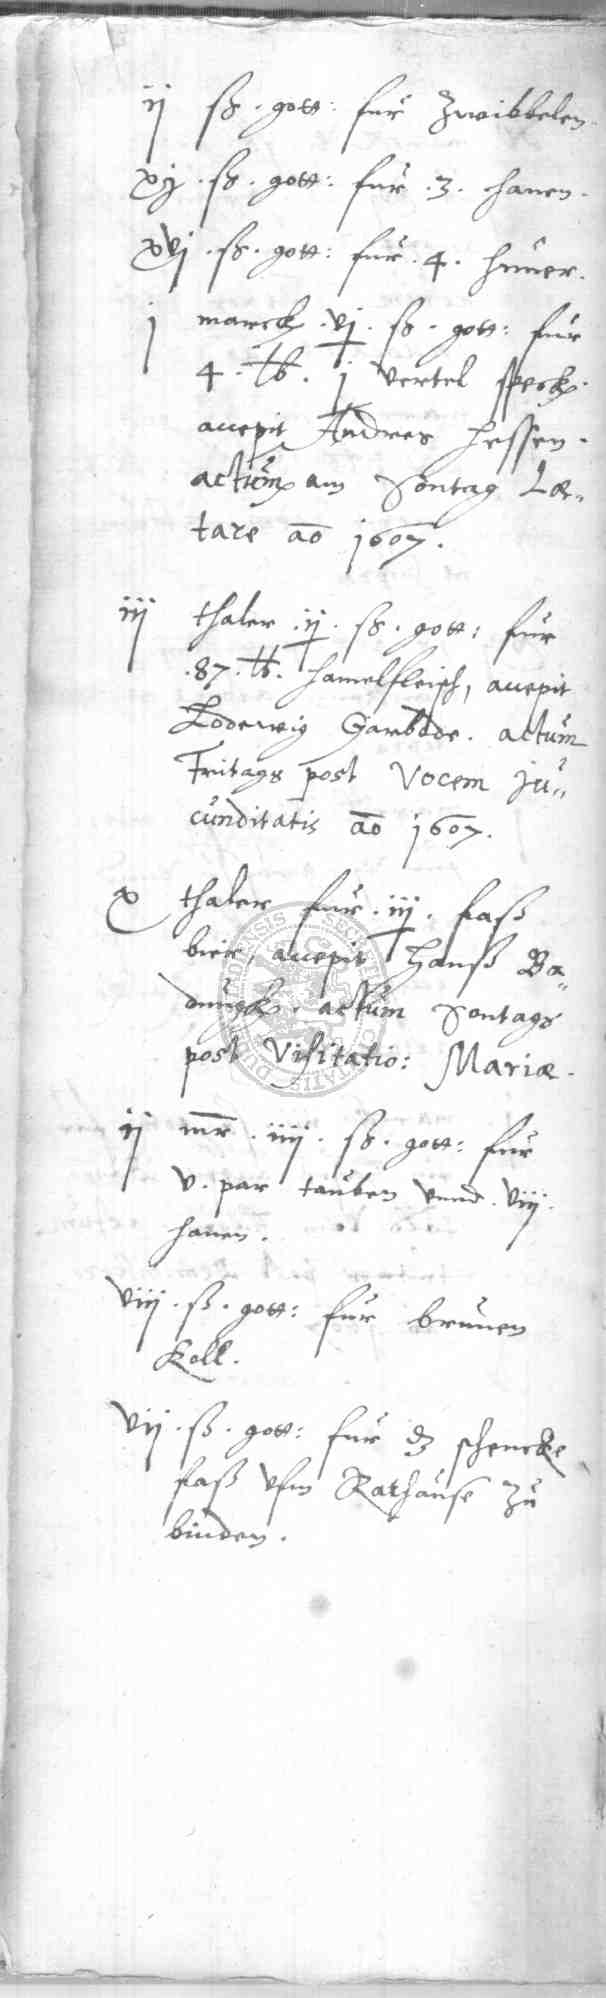 ij ß. gott: fur Zwibbelen.
xj. ß. gott: fur .3. hanen.
xvj. ß. gott: fur .4. huner.
j marck .vj. ß. gott: fur
4. lb. j vertel speck.
accepit Andres Hessen.
actum am Sontag Læ„
tare ao 1607.
iij thaler .ij. ß. gott: fur
.87. lb. hamelfleisch, accepit
Lodewig Garbode. actum
Fritags post Vocem ju„
cunditatis ao 1607.
x thaler fur .iij. faß
bier, accepit Hanß Ba„
dungk. actum Sontags
post Visitatio: Mariæ.
ij mr. iiij. ß. gott: fur
v. par tauben vnnd .viij.
hanen.
viij. ß. gott: fur brunen
Koll.
vij. ß. gott: fur dz schencke
faß vfm Rathause zu
binden.